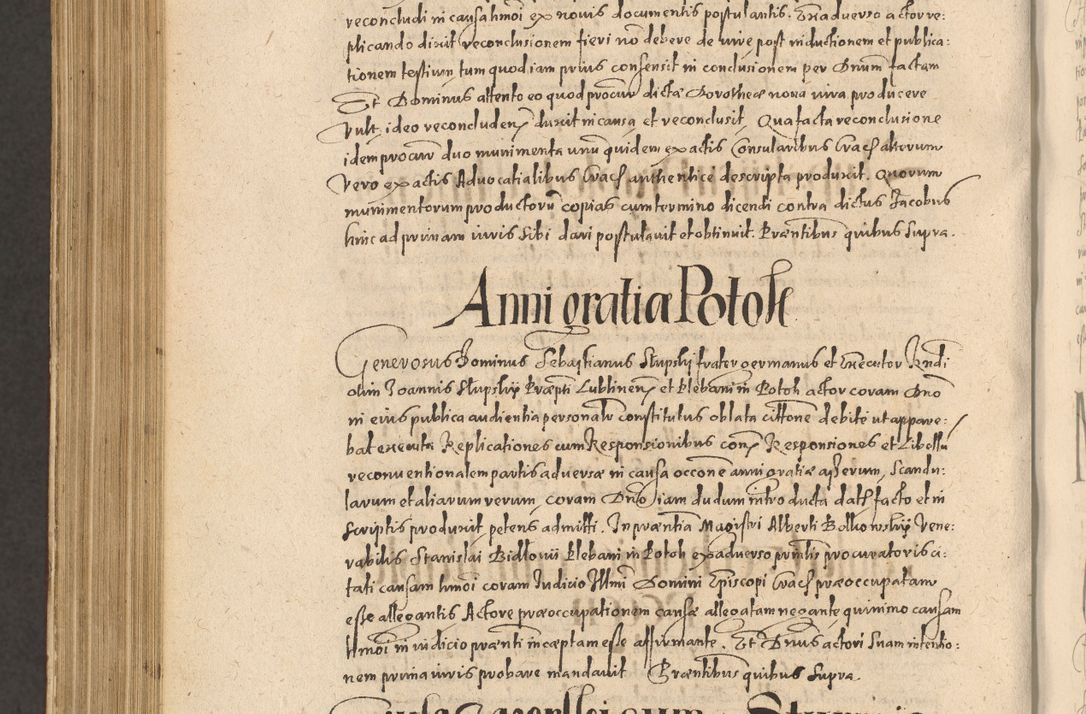 reconcludi in causa hmoi ex novis documentis postulantis. Ex adverso actor re-
plicando dixit reconclusionem fieri no debere de iure post inductionem et publica:
tionem testium tum quod iam prius consensit in conclusionem per Dnum factam
Et Dominus attento eo quod procur dictæ Dorotheæ nova iura producere
vult, ideo reconcluden duxit in causa et reconclusit. Qua facta reconclusione
idem procur duo munimenta unu quidem ex actis Consularibus Crac alterum
vero ex actis Advocatialibus Crac authentice descripta produxit. Quorum
munimentorum productoru copias cum termino dicendi contra dictus Jacobus
hinc ad primam iuris sibi dari postulavit et obtinuit. Præntibus quibus supra.
Anni gratiæ Potok
Generosus Dominus Sebastianus Slupskij frater germanus et Executor
olim Joannis Slupskij Præpti Lublinen et Plebani in Potok actor coram Dno
in eius publica audientia personalr constitutus oblata cittone debite ut appare:
bat executa Replicationes cum Responsionibus con Responsiones et Libellu
reconventionalem partis adversæ in causa occone anni gratiæ asserum, Scandu:
larum et aliarum rerum, coram Dno iam dudum introducta dat facto et in
scriptis produxit petens admitti. In præntia Magistri Alberti Bolkowskij Vene:
rabilis Stanislai Bidlovij Plebani in Potok ex adverso prinlis procuratoris ci:
tati causam hmoi coram Judicio Illmi Domini Episcopi Crac præoccupatam
esse allegantis Actore præoccupationem causæ allegatam negante quinimo causam
hmoi in iudicio prænti incæptam esse affirmante. Et Dnus actori suam intentio:
nem prima iuris probare mandavit Præntibus quibus supra.